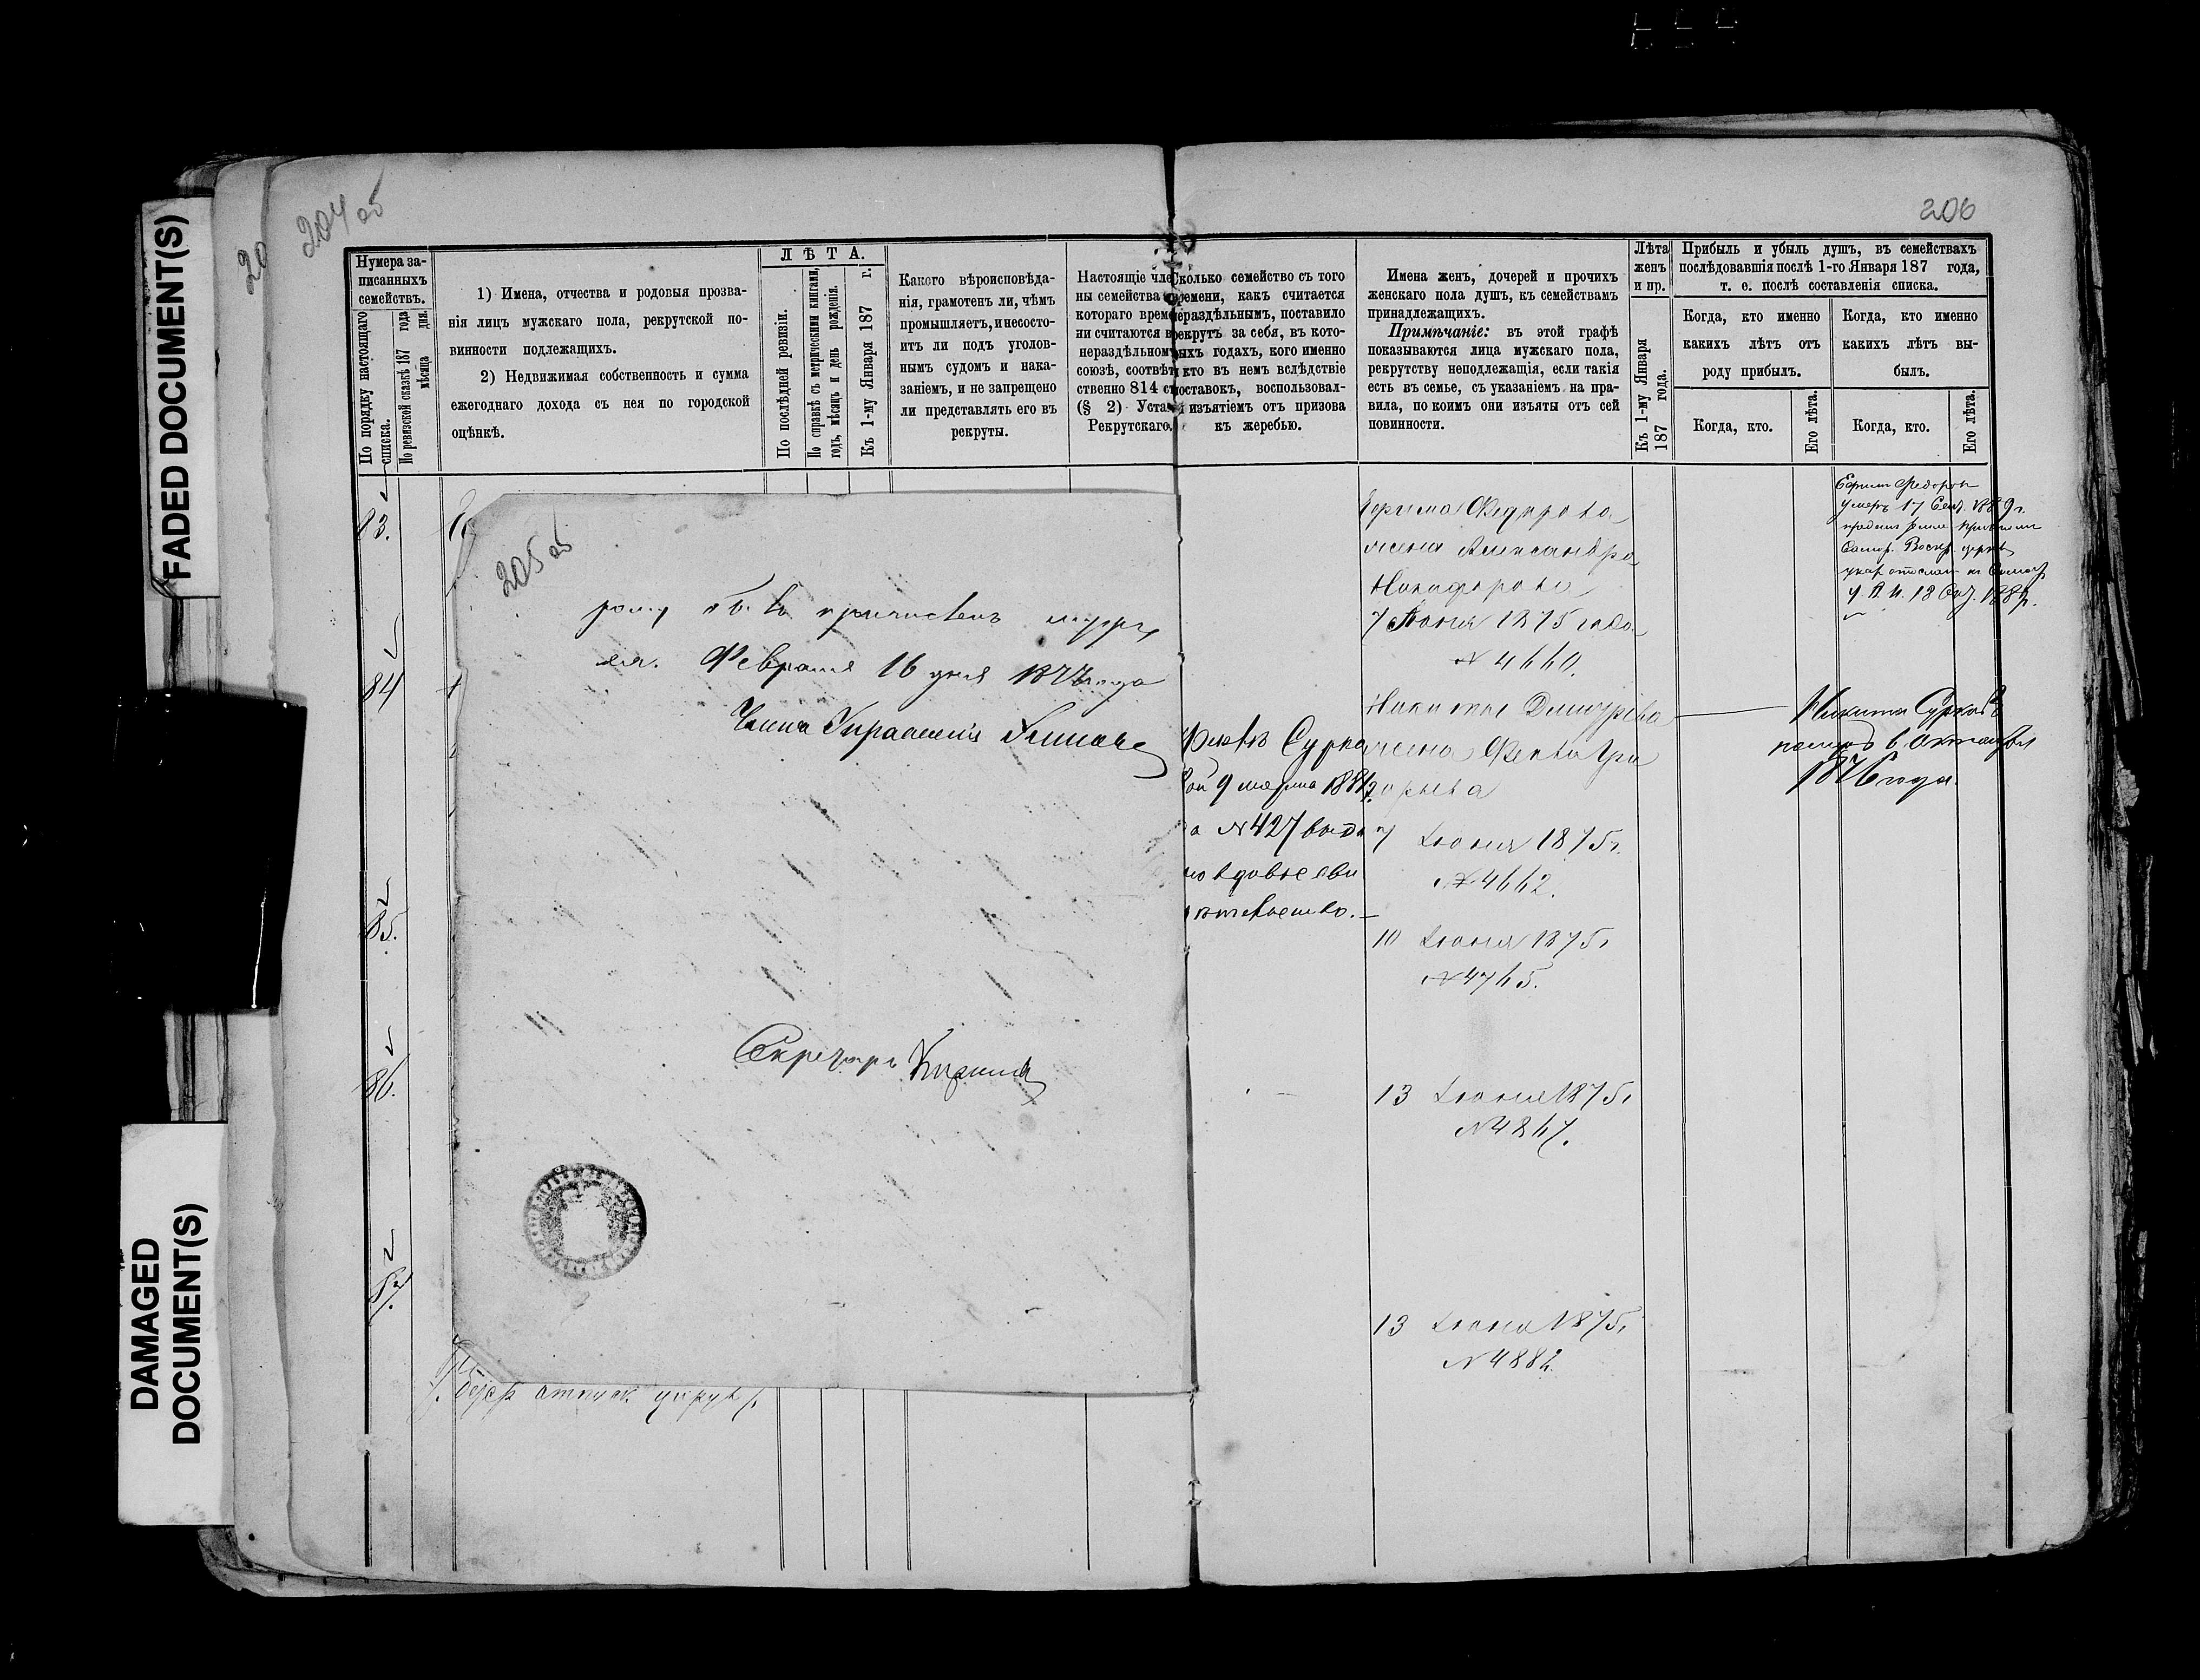 FADED DOCUMENT(S)
DAMAGED
DOCUMENT(S)
204 об
20
206
Нумера за-
писанныхъ
семействъ.
По порядку настоящаго
списка.
По ревизской сказкѣ 187 года
мѣсяца дня.
1) Имена, отчества и родовыя прозва-
нія лицъ мужскаго пола, рекрутской по-
винности подлежащихъ.
2) Недвижимая собственность и сумма
ежегоднаго дохода съ нея по городской
оцѣнкѣ.
ЛѢТА.
По послѣдней ревизіи.
По справкѣ съ метрическими книгами,
годъ, мѣсяцъ и день рожденія.
Къ 1-му Января 187 г.
Какого вѣроисповѣда-
нія, грамотенъ ли, чѣмъ
промышляетъ, и несосто-
итъ ли подъ уголов-
нымъ судомъ и нака-
заніемъ, и не запрещено
ли представлять его въ
рекруты.
Настоящіе чле
ны семейства
котораго врем
ни считаются в
нераздѣльном
союзѣ, соотвѣт
ственно 814 ст
(§ 2) Уста
Рекрутскаго.
Сколько семейство съ того
времени, какъ считается
нераздѣльнымъ, поставило
рекрутъ за себя, въ кото-
рыхъ годахъ, кого именно
и кто въ немъ вслѣдствіе
поставокъ, воспользовал-
изъятіемъ отъ призова
къ жеребью.
Имена женъ, дочерей и прочихъ
женскаго пола душъ, къ семействамъ
принадлежащихъ.
Примѣчаніе: въ этой графѣ
показываются лица мужскаго пола,
рекрутству неподлежащія, если такія
есть въ семье, съ указаніемъ на пра-
вила, по коимъ они изъяты отъ сей
повинности.
Лѣта
женъ
и пр.
Къ 1-му Января
187 года.
Прибыль и убыль душъ, въ семействахъ
послѣдовавшія послѣ 1-го Января 187 года,
т. е. послѣ составленія списка.
Когда, кто именно
какихъ лѣтъ отъ
роду прибылъ.
Когда, кто.
Его лѣта.
Когда, кто именно
какихъ лѣтъ вы-
былъ.
Когда, кто.
Его лѣта.
83.
84
85.
86.
87.
205 об
Февраля 16 дня 1877 года
Члена Управленія
Секретарь
Сурко
9 марта 1881
а №427 выда
но вдовье сви
Ефима Федорова
жена Александра
Никифорова
7 Июня 1875 года
№ 4660.
Никиты
жена Фекла Гри
горьева
7 Июня 1875 г.
№ 4662.
10 Июня 1875 г.
№ 4765.
13 Июня 1875 г.
№ 4867.
13 Июня 1875 г.
№ 4882.
Ефимъ Федоровъ
умеръ 17 Сент. 1889 г.
Никита Сурковъ
померъ в Октября
1876 года.